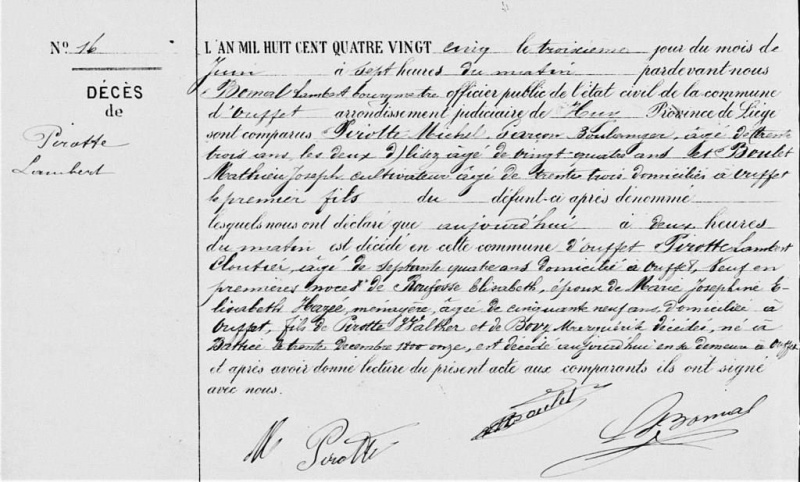 N.º 16
DÉCÈS
de
Pirotte
Lambert
L'AN MIL HUIT CENT QUATRE VINGT cinq le troisième jour du mois de
Juin à sept heures du matin pardevant nous
Bomal Lambert bourgmestre officier public de l'état civil de la commune
d'Ouffet arrondissement judiciaire de Huy Province de Liége
sont comparus Pirotte Michel garçon Boulanger, âgé de trente
trois ans, les deux âgé de vingt-quatre ans et Boulet
Mathieu Joseph cultivateur âgé de trente trois domiciliés à Ouffet
le premier fils du défunt ci après dénommé
lesquels nous ont déclaré que aujourd'hui à deux heures
du matin est décédé en cette commune d'Ouffet Pirotte Lambert
Cloutier, âgé de septante quatre ans domicilié à Ouffet, veuf en
premières noces de Elisabeth, époux de Marie Josephine E-
lisabeth ménagère, âgée de cinquante neuf ans, domiciliée à
Ouffet, fils de Pirotte Walther et de décédés, né à
le trente Décembre 1800 onze, est décédé aujourd'hui en sa demeure à Ouffet
et après avoir donné lecture du présent acte aux comparants ils ont signé
avec nous.
M Pirotte
Boulet
L. Bomal